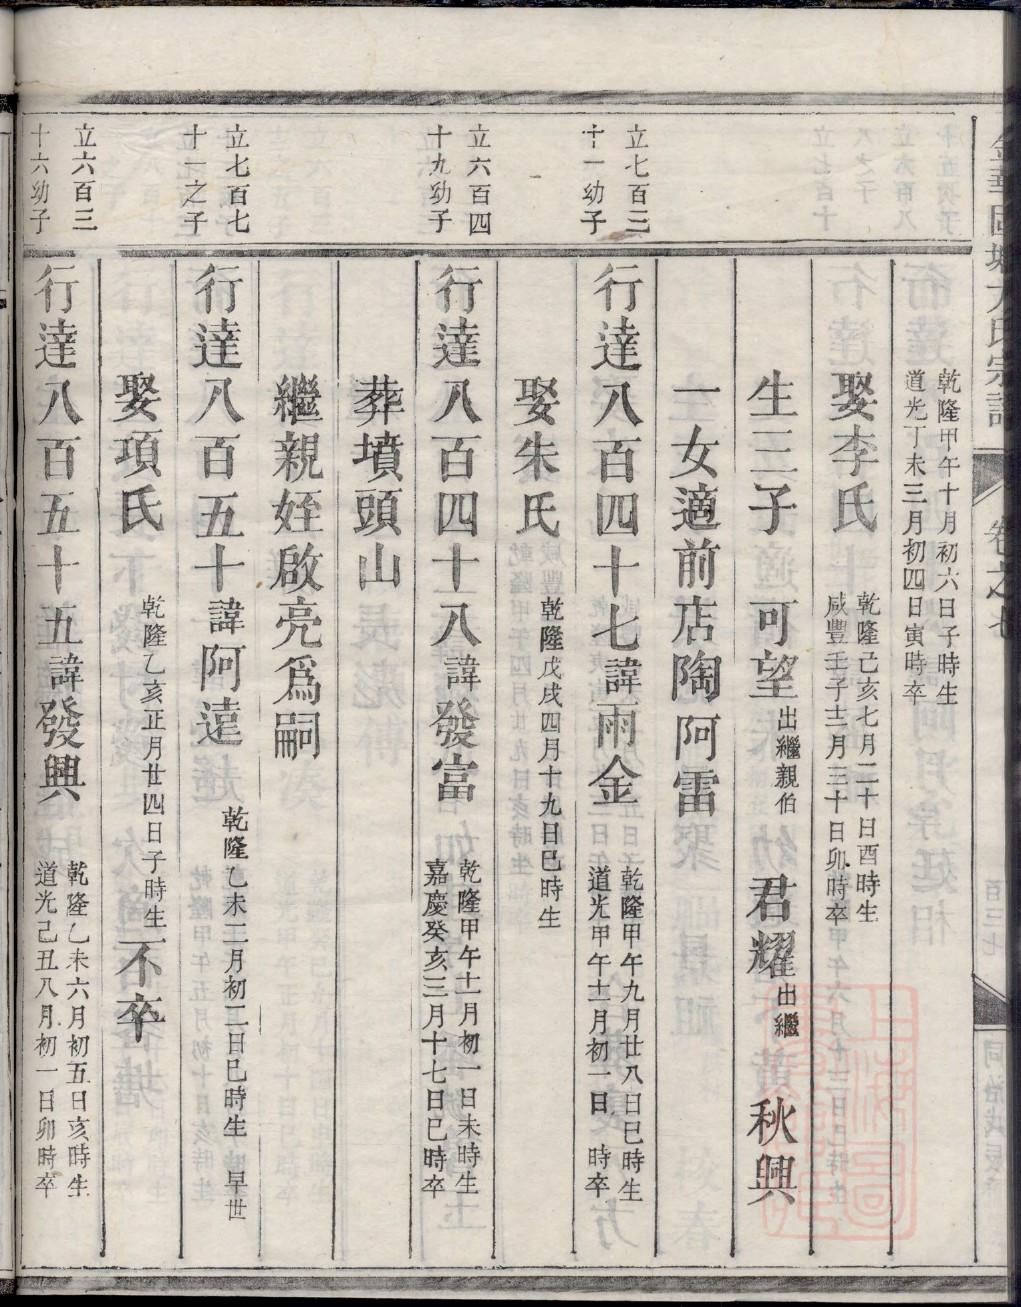 乾隆甲午十月初六日子時生
道光丁未三月初四日寅時卒
娶李氏
乾隆己亥七月二十日酉時生
咸豐壬子十二月三十日卯時卒
生三子 可望出繼親伯 君耀出繼 秋興
一女適前店陶阿雷
立七百三
十一幼子
行達八百四十七諱雨金
乾隆甲午九月廿八日巳時生
道光甲午十二月初一日 時卒
娶朱氏
乾隆戊戌四月十九日巳時生
立六百四
十九幼子
行達八百四十八諱發富
乾隆甲午十一月初一日未時生
嘉慶癸亥三月十七日巳時卒
葬墳頭山
繼親姪啟亮為嗣
立七百七
十一之子
行達八百五十諱阿遠
乾隆乙未二月初二日巳時生 早世
娶項氏
乾隆乙亥正月廿四日子時生
不卒
立六百三
十六幼子
行達八百五十五諱發興
乾隆乙未六月初五日亥時生
道光己丑八月初一日卯時卒